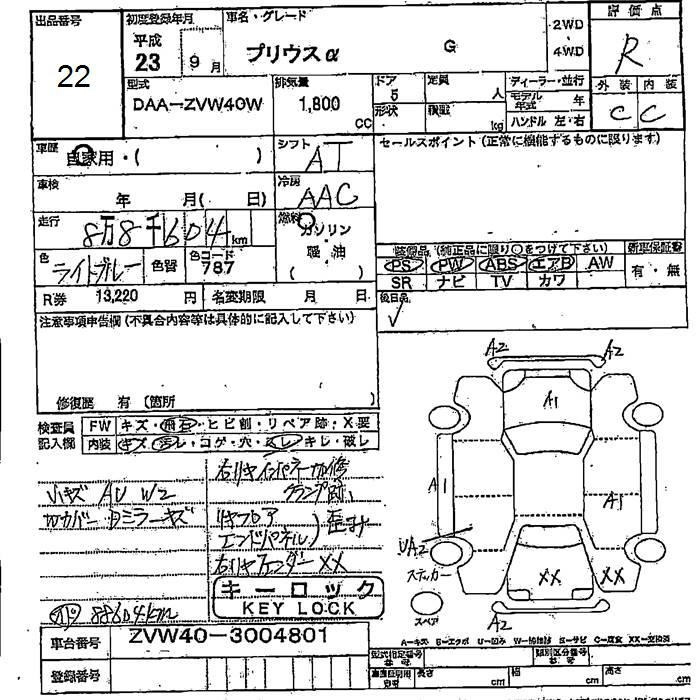 出品番号
22
初度登録年月
平成
23 9月
車名・グレード
プリウスα G
2WD
・
4WD
評価点
R
型式
DAA-ZVW40W
排気量
1,800
CC
ドア
5
形状
定員
人
積載
kg
ディーラー・並行
モデル年式 年
ハンドル 左・右
外装 内装
C C
車歴
自家用・( )
シフト
AT
セールスポイント(正常に機能するものに限ります)
車検
年 月( 日)
冷房
AAC
走行
8万8千604km
燃料
ガソリン
軽油
( )
色
ライトグレー
色替
色コード
787
装備品 (純正品に限り○をつけて下さい)
新車保証書
PS PW ABS エアB AW
有・無
SR ナビ TV カワ
R券 13,220 円
名変期限 月 日
後日品
注意事項申告欄(不具合内容等は具体的に記入して下さい)
修復歴 有 (箇所 )
検査員
記入欄
FW キズ・飛石・ヒビ割・リペア跡・X要
内装 キズ・汚レ・コゲ・穴・スレ・キレ・破レ
小キズ AU W2
右リヤインパネー加修
クランプ跡
リヤフロア
エンドパネル)歪み
右リヤフェンダーXX
キーロック
KEY LOCK
88604km
車台番号 ZVW40-3004801
登録番号
A2 A2
A1
A1 A1
UA2
ステッカー
XX XX
スペア
A2
A-キズ E-エクボ U-凹み S-サビ C-腐食 XX-交換済
型式指定番号
類別区分番号
長さ cm 幅 cm 高さ cm